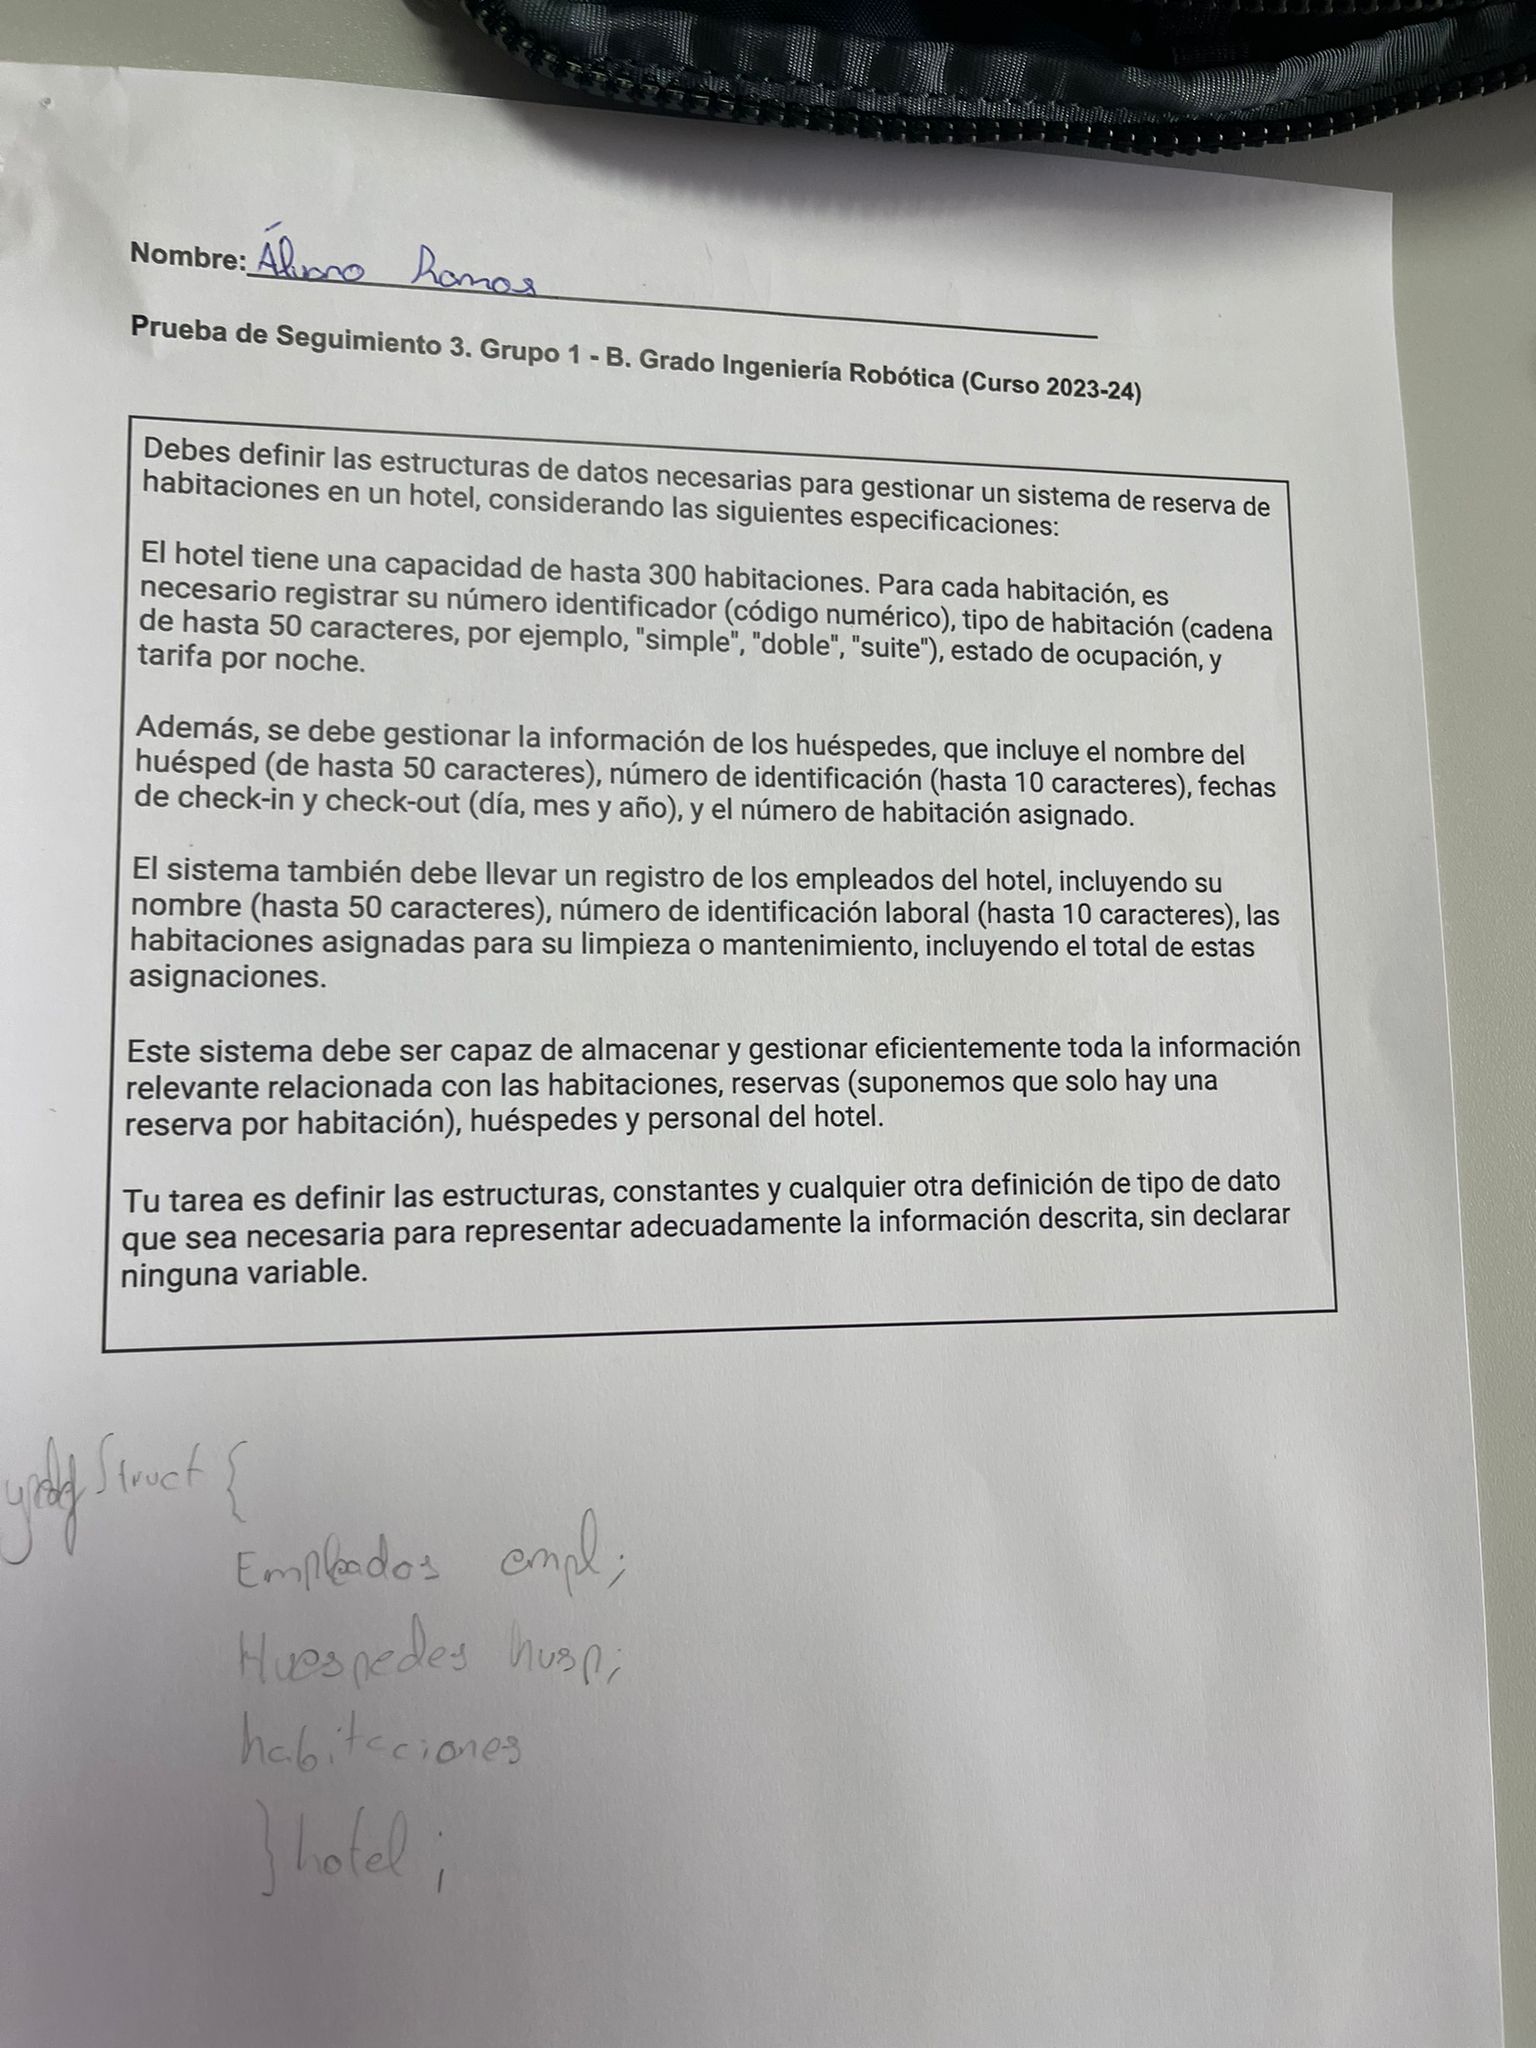 Nombre: Álvaro Ramos
Prueba de Seguimiento 3. Grupo 1 - B. Grado Ingeniería Robótica (Curso 2023-24)
Debes definir las estructuras de datos necesarias para gestionar un sistema de reserva de
habitaciones en un hotel, considerando las siguientes especificaciones:
El hotel tiene una capacidad de hasta 300 habitaciones. Para cada habitación, es
necesario registrar su número identificador (código numérico), tipo de habitación (cadena
de hasta 50 caracteres, por ejemplo, "simple", "doble", "suite"), estado de ocupación, y
tarifa por noche.
Además, se debe gestionar la información de los huéspedes, que incluye el nombre del
huésped (de hasta 50 caracteres), número de identificación (hasta 10 caracteres), fechas
de check-in y check-out (día, mes y año), y el número de habitación asignado.
El sistema también debe llevar un registro de los empleados del hotel, incluyendo su
nombre (hasta 50 caracteres), número de identificación laboral (hasta 10 caracteres), las
habitaciones asignadas para su limpieza o mantenimiento, incluyendo el total de estas
asignaciones.
Este sistema debe ser capaz de almacenar y gestionar eficientemente toda la información
relevante relacionada con las habitaciones, reservas (suponemos que solo hay una
reserva por habitación), huéspedes y personal del hotel.
Tu tarea es definir las estructuras, constantes y cualquier otra definición de tipo de dato
que sea necesaria para representar adecuadamente la información descrita, sin declarar
ninguna variable.
Struct {
Empleados empl;
Huespedes husp;
habitaciones
} hotel;